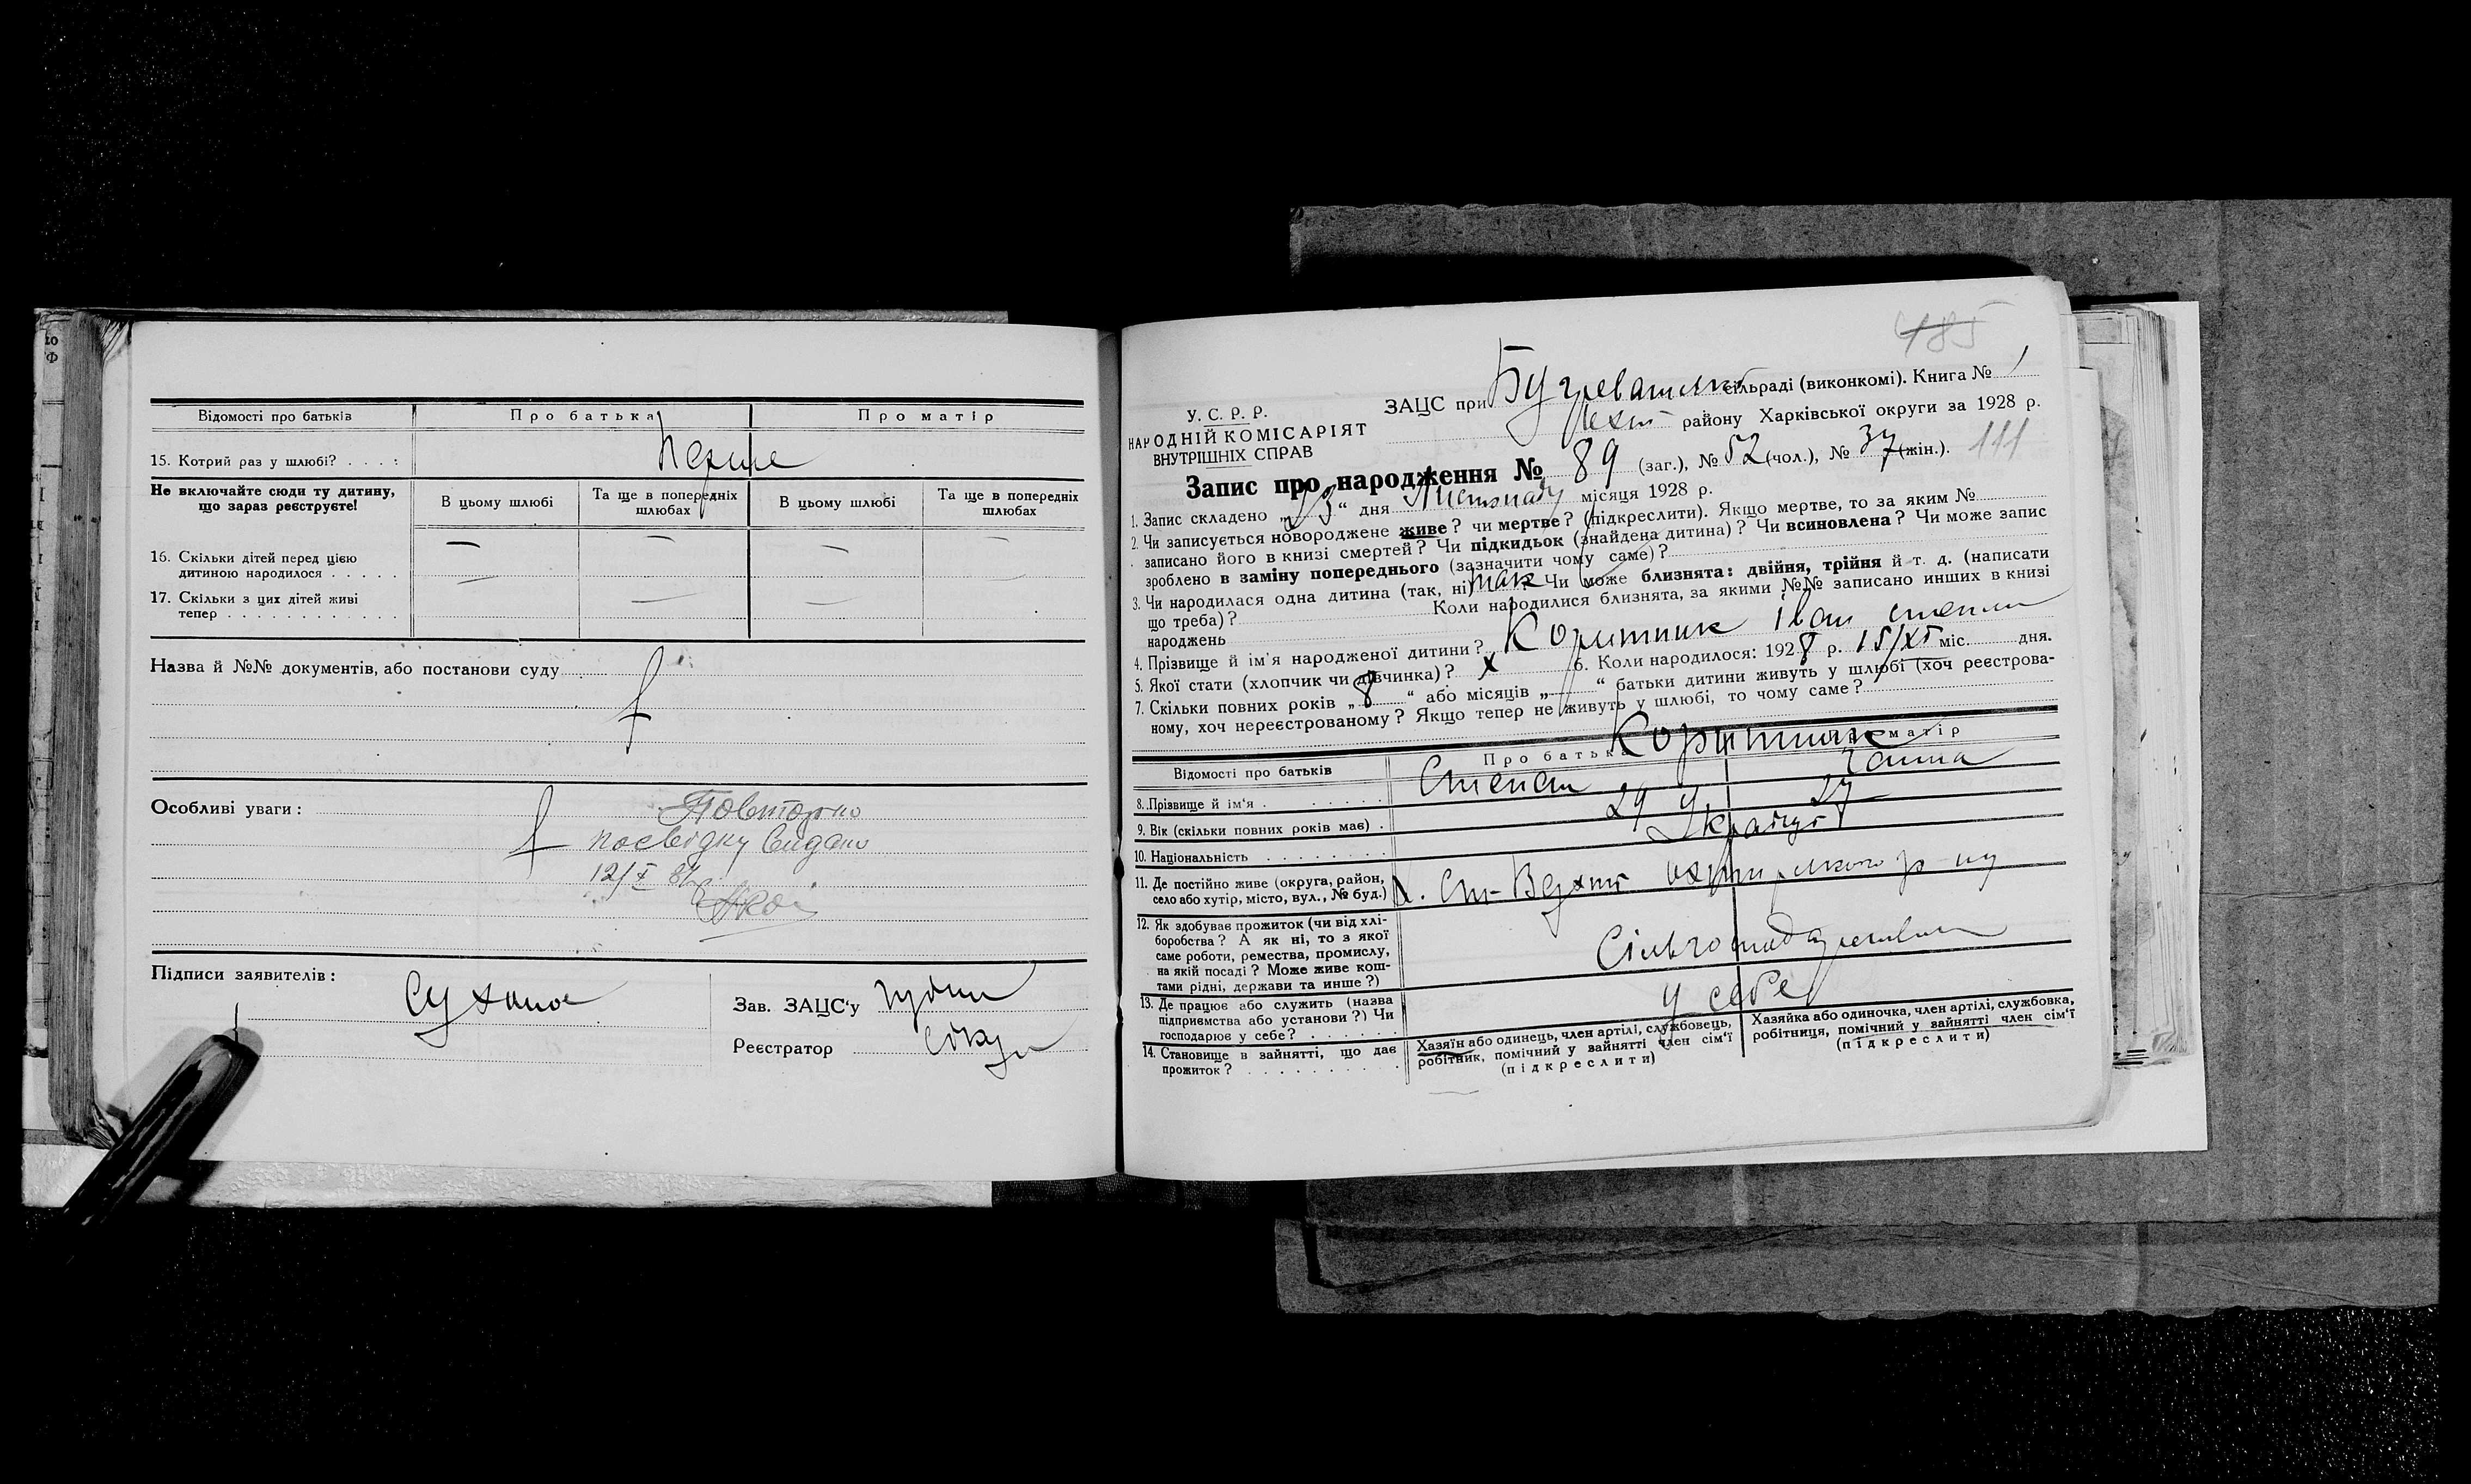 Відомості про батьків
Про батька
Про матір
15. Котрий раз у шлюбі? . . . :
Перше
Не включайте сюди ту дитину,
що зараз реєструєте!
В цьому шлюбі
Та ще в попередніх
шлюбах
В цьому шлюбі
Та ще в попередніх
шлюбах
16. Скільки дітей перед цією
дитиною народилося . . . . .
— — — —
17. Скільки з цих дітей живі
тепер . . . . . . . . . . . .
— — — —
Назва й №№ документів, або постанови суду
Особливі уваги:
Повторно
посвідку видано
12/X
Підписи заявителів:
Зав. ЗАЦС'у
Реєстратор
485
У. С. Р. Р.
НАРОДНІЙ КОМІСАРІЯТ
ВНУТРІШНІХ СПРАВ
ЗАЦС при сільраді (виконкомі). Книга № 1
району Харківської округи за 1928 р.
Запис про народження № 89 (заг.), № 52 (чол.), № 37 (жін.). 111
1. Запис складено „23“ дня Листопаду місяця 1928 р.
2. Чи записується новороджене живе? чи мертве? (підкреслити). Якщо мертве, то за яким №
записано його в книзі смертей? Чи підкидьок (знайдена дитина)? Чи всиновлена? Чи може запис
зроблено в заміну попереднього (зазначити чому саме)?
3. Чи народилася одна дитина (так, ні) так Чи може близнята: двійня, трійня й т. д. (написати
що треба)? Коли народилися близнята, за якими №№ записано инших в книзі
народжень
4. Прізвище й ім'я народженої дитини? Коритник Іван
5. Якої стати (хлопчик чи дівчинка)? х 6. Коли народилося: 1928 р. 15/XI міс. дня.
7. Скільки повних років „8“ або місяців „—“ батьки дитини живуть у шлюбі (хоч реєстрова-
ному, хоч нереєстрованому? Якщо тепер не живуть у шлюбі, то чому саме?
Відомості про батьків
Про батька
Про матір
8. Прізвище й ім'я . . . . . .
Коритник
Степан
Ганна
9. Вік (скільки повних років має) .
29
27
10. Національність . . . . . . . .
11. Де постійно живе (округа, район,
село або хутір, місто, вул., № буд.)
12. Як здобуває прожиток (чи від хлі-
боробства? А як ні, то з якої
саме роботи, ремества, промислу,
на якій посаді? Може живе кош-
тами рідні, держави та инше?)
13. Де працює або служить (назва
підприємства або установи?) Чи
господарює у себе? . . . . . .
у себе
14. Становище в зайнятті, що дає
прожиток? . . . . . . . . . .
Хазяїн або одинець, член артілі, службовець,
робітник, помічний у зайнятті член сім'ї
(підкреслити)
Хазяйка або одиночка, член артілі, службовка,
робітниця, помічний у зайнятті член сім'ї
(підкреслити)